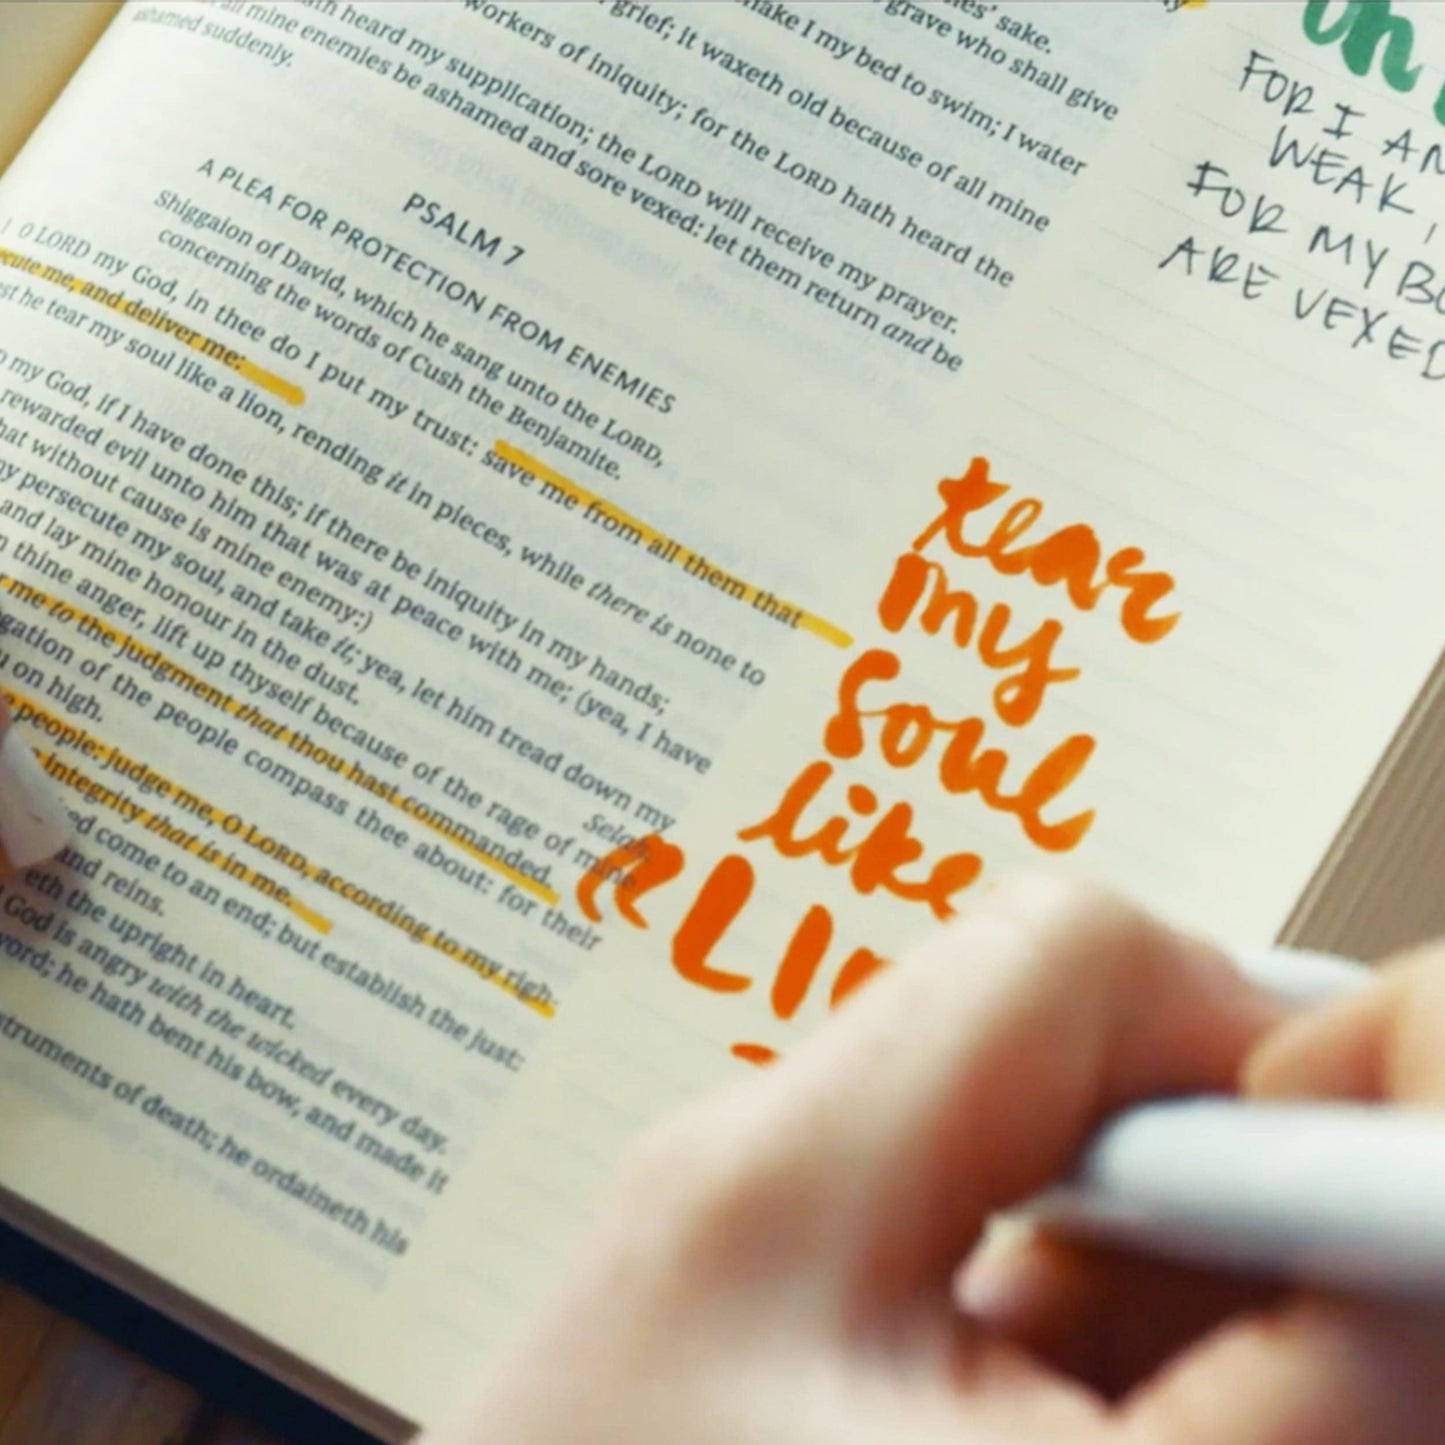 sake.
grave who shall give
make I my bed to swim; I water
grief; it waxeth old because of all mine
workers of iniquity; for the LORD hath heard the
heard my supplication; the LORD will receive my prayer.
all mine enemies be ashamed and sore vexed: let them return and be
ashamed suddenly.
PSALM 7
A PLEA FOR PROTECTION FROM ENEMIES
Shiggaion of David, which he sang unto the LORD,
concerning the words of Cush the Benjamite.
1 O LORD my God, in thee do I put my trust: save me from all them that
me, and deliver me:
he tear my soul like a lion, rending it in pieces, while there is none to
my God, if I have done this; if there be iniquity in my hands;
rewarded evil unto him that was at peace with me; (yea, I have
without cause is mine enemy:)
persecute my soul, and take it; yea, let him tread down my
and lay mine honour in the dust. Selah
thine anger, lift up thyself because of the rage of mine
me to the judgment that thou hast commanded.
of the people compass thee about: for their
on high.
people: judge me, O LORD, according to my righ-
integrity that is in me.
come to an end; but establish the just:
and reins.
the upright in heart.
God is angry with the wicked every day.
he hath bent his bow, and made it
of death; he ordaineth his
on
FOR I AM
WEAK,
FOR MY
ARE VEXED
tear
my
soul
like
a LI